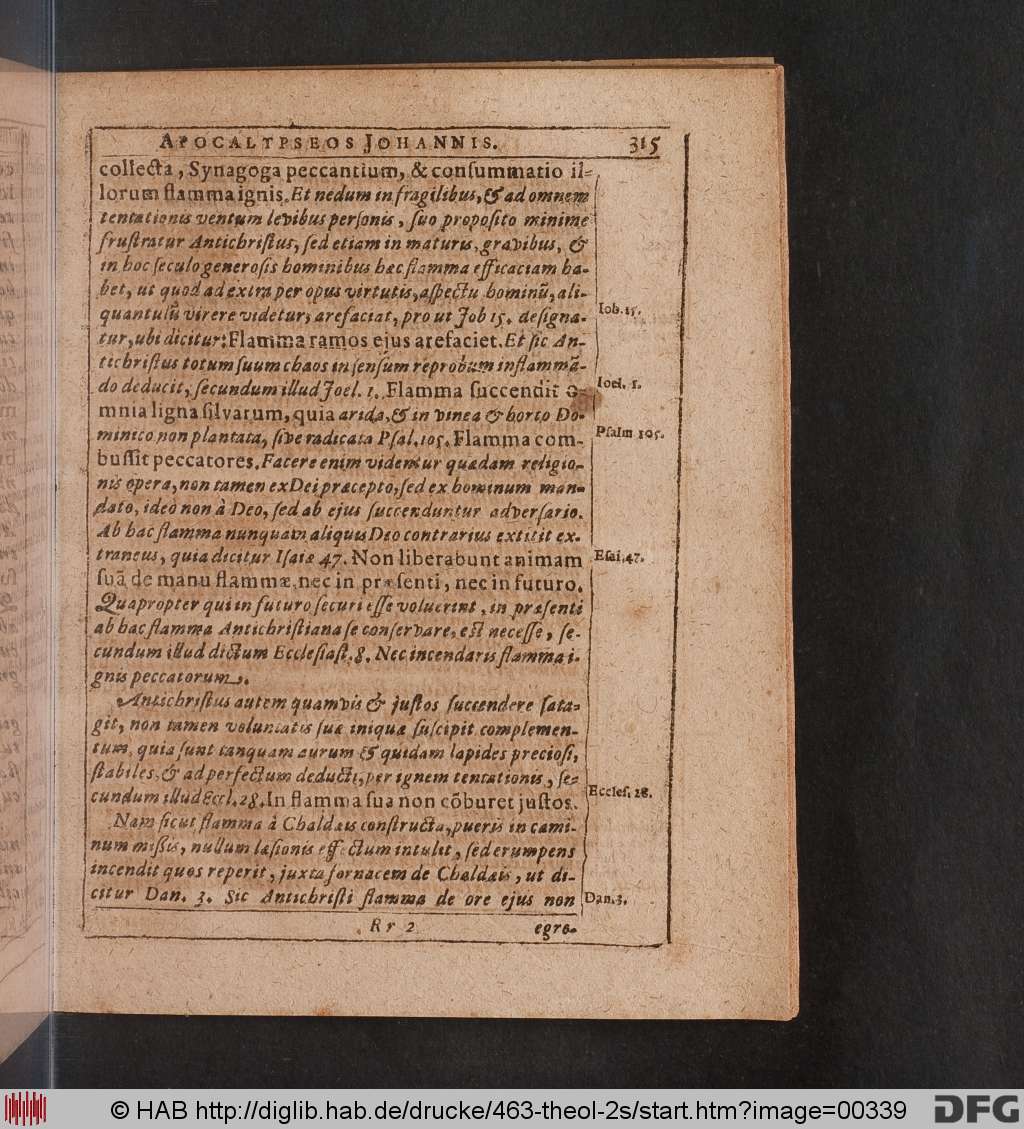 APOCALYPSEOS JOHANNIS. 315
collecta, Synagoga peccantium, & consummatio il-
lorum flamma ignis. Et nedum in fragilibus, & ad omnem
tentationis ventum levibus personis, suo proposito minime
frustratur Antichristus, sed etiam in maturis, gravibus, &
in hoc seculo generosis hominibus hæc flamma efficaciam ha-
bet, ut quod ad extra per opus virtutis, aspectu hominū, ali-
quantulū virere videtur, arefaciat, prout Job 15. designa-
Iob. 15.
tur, ubi dicitur: Flamma ramos ejus arefaciet. Et sic An-
tichristus totum suum chaos in sensum reprobum inflammā-
do deducit, secundum illud Joel. 1. Flamma succendit o-
Ioel. 1.
mnia ligna silvarum, quia arida, & in vinea & horto Do-
minico non plantata, sive radicata Psal. 105. Flamma com-
Psalm 105.
bussit peccatores. Facere enim videntur quædam religio-
nis opera, non tamen ex Dei præcepto, sed ex hominum man-
dato, ideò non à Deo, sed ab ejus succenduntur adversario.
Ab hac flamma nunquam aliquis Deo contrarius extitit ex-
traneus, quia dicitur Isaiæ 47. Non liberabunt animam
Esai. 47.
suā de manu flammæ, nec in præsenti, nec in futuro.
Quapropter qui in futuro securi esse voluerint, in præsenti
ab hac flamma Antichristiana se conservare, est necesse, se-
cundum illud dictum Ecclesiast. 8. Nec incendaris flamma i-
gnis peccatorum.
Antichristus autem quamvis & justos succendere sata-
git, non tamen voluntatis suæ iniquæ suscipit complemen-
tum, quia sunt tanquam aurum & quidam lapides preciosi,
stabiles, & ad perfectum deducti, per ignem tentationis, se-
cundum illud Eccl. 28. In flamma sua non cōburet justos.
Eccles. 28.
Nam sicut flamma à Chaldæis constructa, pueris in cami-
num missis, nullum læsionis effectum intulit, sed erumpens
incendit quos reperit, juxta fornacem de Chaldæis, ut di-
citur Dan. 3. Sic Antichristi flamma de ore ejus non
Dan. 3.
Rr 2
egre-
© HAB http://diglib.hab.de/drucke/463-theol-2s/start.htm?image=00339
DFG